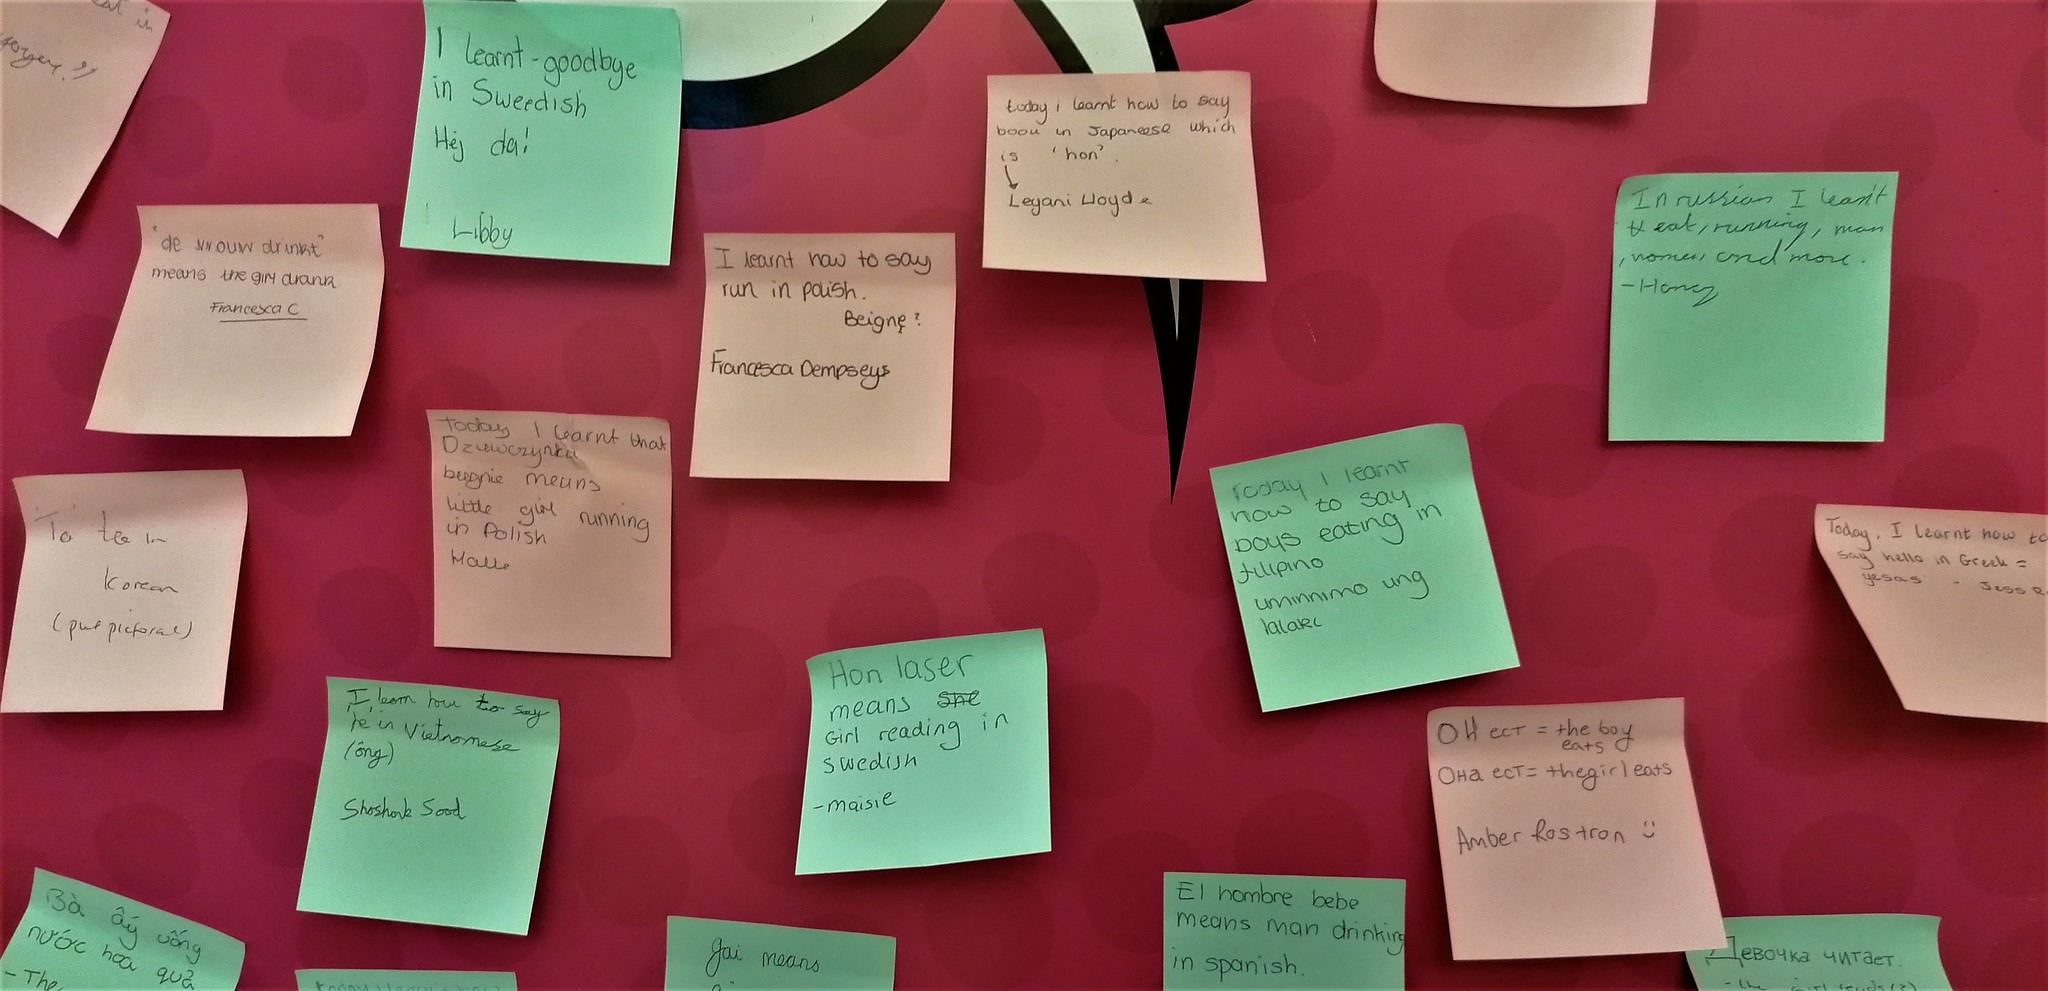 I learnt - goodbye
in Sweedish
Hej da!
Libby
today i learnt how to say
boou in Japaneese which
is 'hon'.
Leyani Lloyd
In russian I learnt
eat, running, man
, women, and more.
"de vrouw drinkt"
means the girl drank
Francesca C
I learnt how to say
run in polish.
Beignę?
Francesca Dempseys
Today I learnt that
Dziewczynka
beignie means
little girl running
in Polish
Today I learnt
how to say
boys eating in
filipino
uminnimo ung
lalaki
Today, I learnt how to
say hello in Greek =
yesas - Jess R
in
Korean
I learn how to say
he in Vietnomese
(ông)
Shashank Sood
Hon laser
means she
Girl reading in
swedish
- maisie
ОН ест = the boy
eats
Она ест = the girl eats
Amber Rostron
Bà ấy uống
nước hoa quả
- The
gai means
El hombre bebe
means man drinking
in spanish.
Девочка читает.
- the girl reads(?)